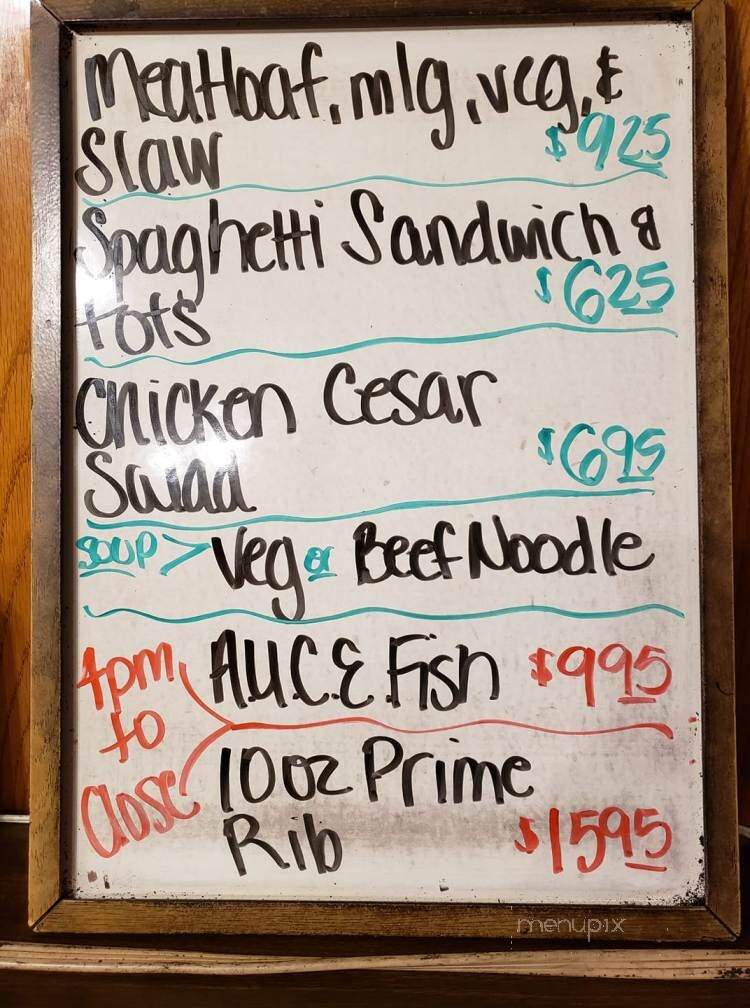 Meatloaf, mlg, veg, &
Slaw $925
Spaghetti Sandwich &
tots $625
Chicken Cesar
Salad $695
SOUP > Veg or Beef Noodle
4pm A.U.C.E. Fish $995
to
Close 10 oz Prime
Rib $1595
menupix